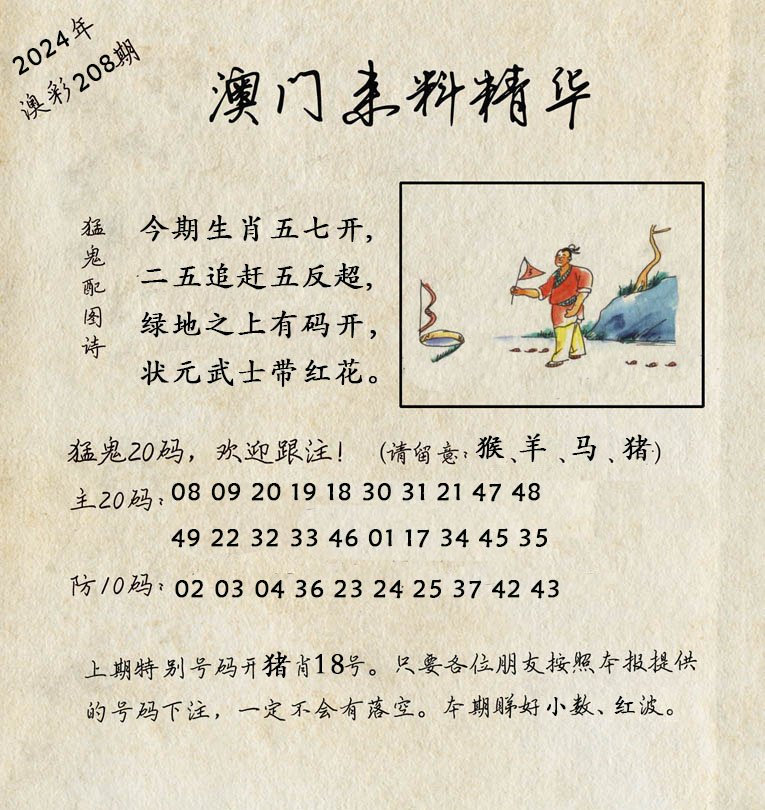 2024年
澳彩208期
澳门来料精华
猛鬼配图诗
今期生肖五七开,
二五追赶五反超,
绿地之上有码开,
状元武士带红花。
猛鬼20码，欢迎跟注！（请留意：猴、羊、马、猪）
主20码：08 09 20 19 18 30 31 21 47 48
49 22 32 33 46 01 17 34 45 35
防10码：02 03 04 36 23 24 25 37 42 43
上期特别号码开猪肖18号。只要各位朋友按照本报提供
的号码下注，一定不会有落空。本期睇好小数、红波。